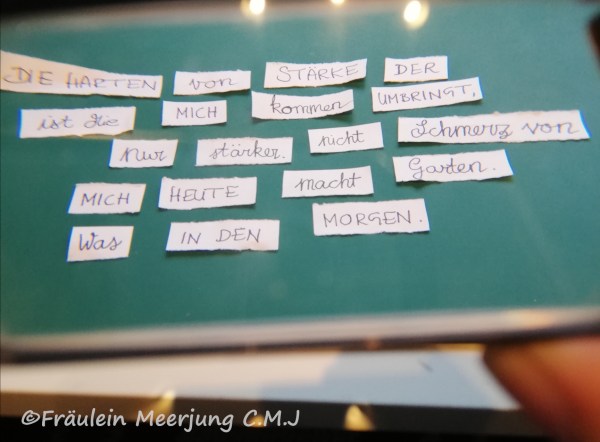 DIE HARTEN von STÄRKE DER
ist die MICH kommen UMBRINGT,
nur stärker. nicht Schmerz von
MICH HEUTE macht Garten.
Was IN DEN MORGEN.
©Fräulein Meerjung C.M.J